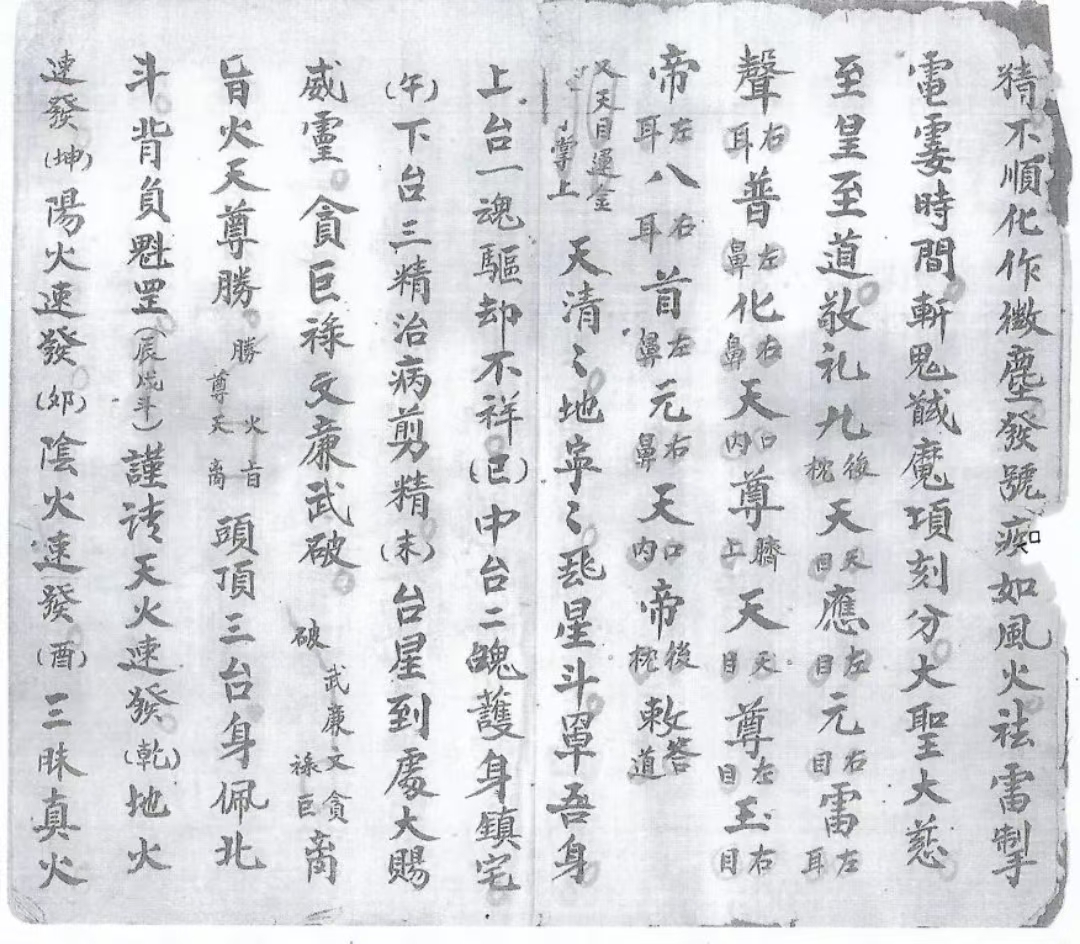 猜不順化作微塵發號疾如風火祛雷掣
電霎時間斬鬼馘魔項刻分大聖大慈
至皇至道敬礼九後枕天天目應左目元右目雷左耳
聲右耳普左鼻化右鼻天口内尊臍上天天目尊左目玉右目
帝左耳八右耳首左鼻元右鼻天口内帝後枕敕答道
又天目運金
掌上 天清〻地寕〻 星斗罩吾身
上台一魂驅却不祥(巳)中台二魄護身鎮宅
(午)下台三精治病剪精(未)台星到處大賜
威霊貪巨祿文亷武破 破武亷文祿貪巨
旨火天尊勝勝尊火天旨离頭頂三台身佩北
斗背負魁罡(辰戌斗)謹請天火速發(乾)地火
速發(坤)陽火速發(卯)陰火速發(酉)三昧真火